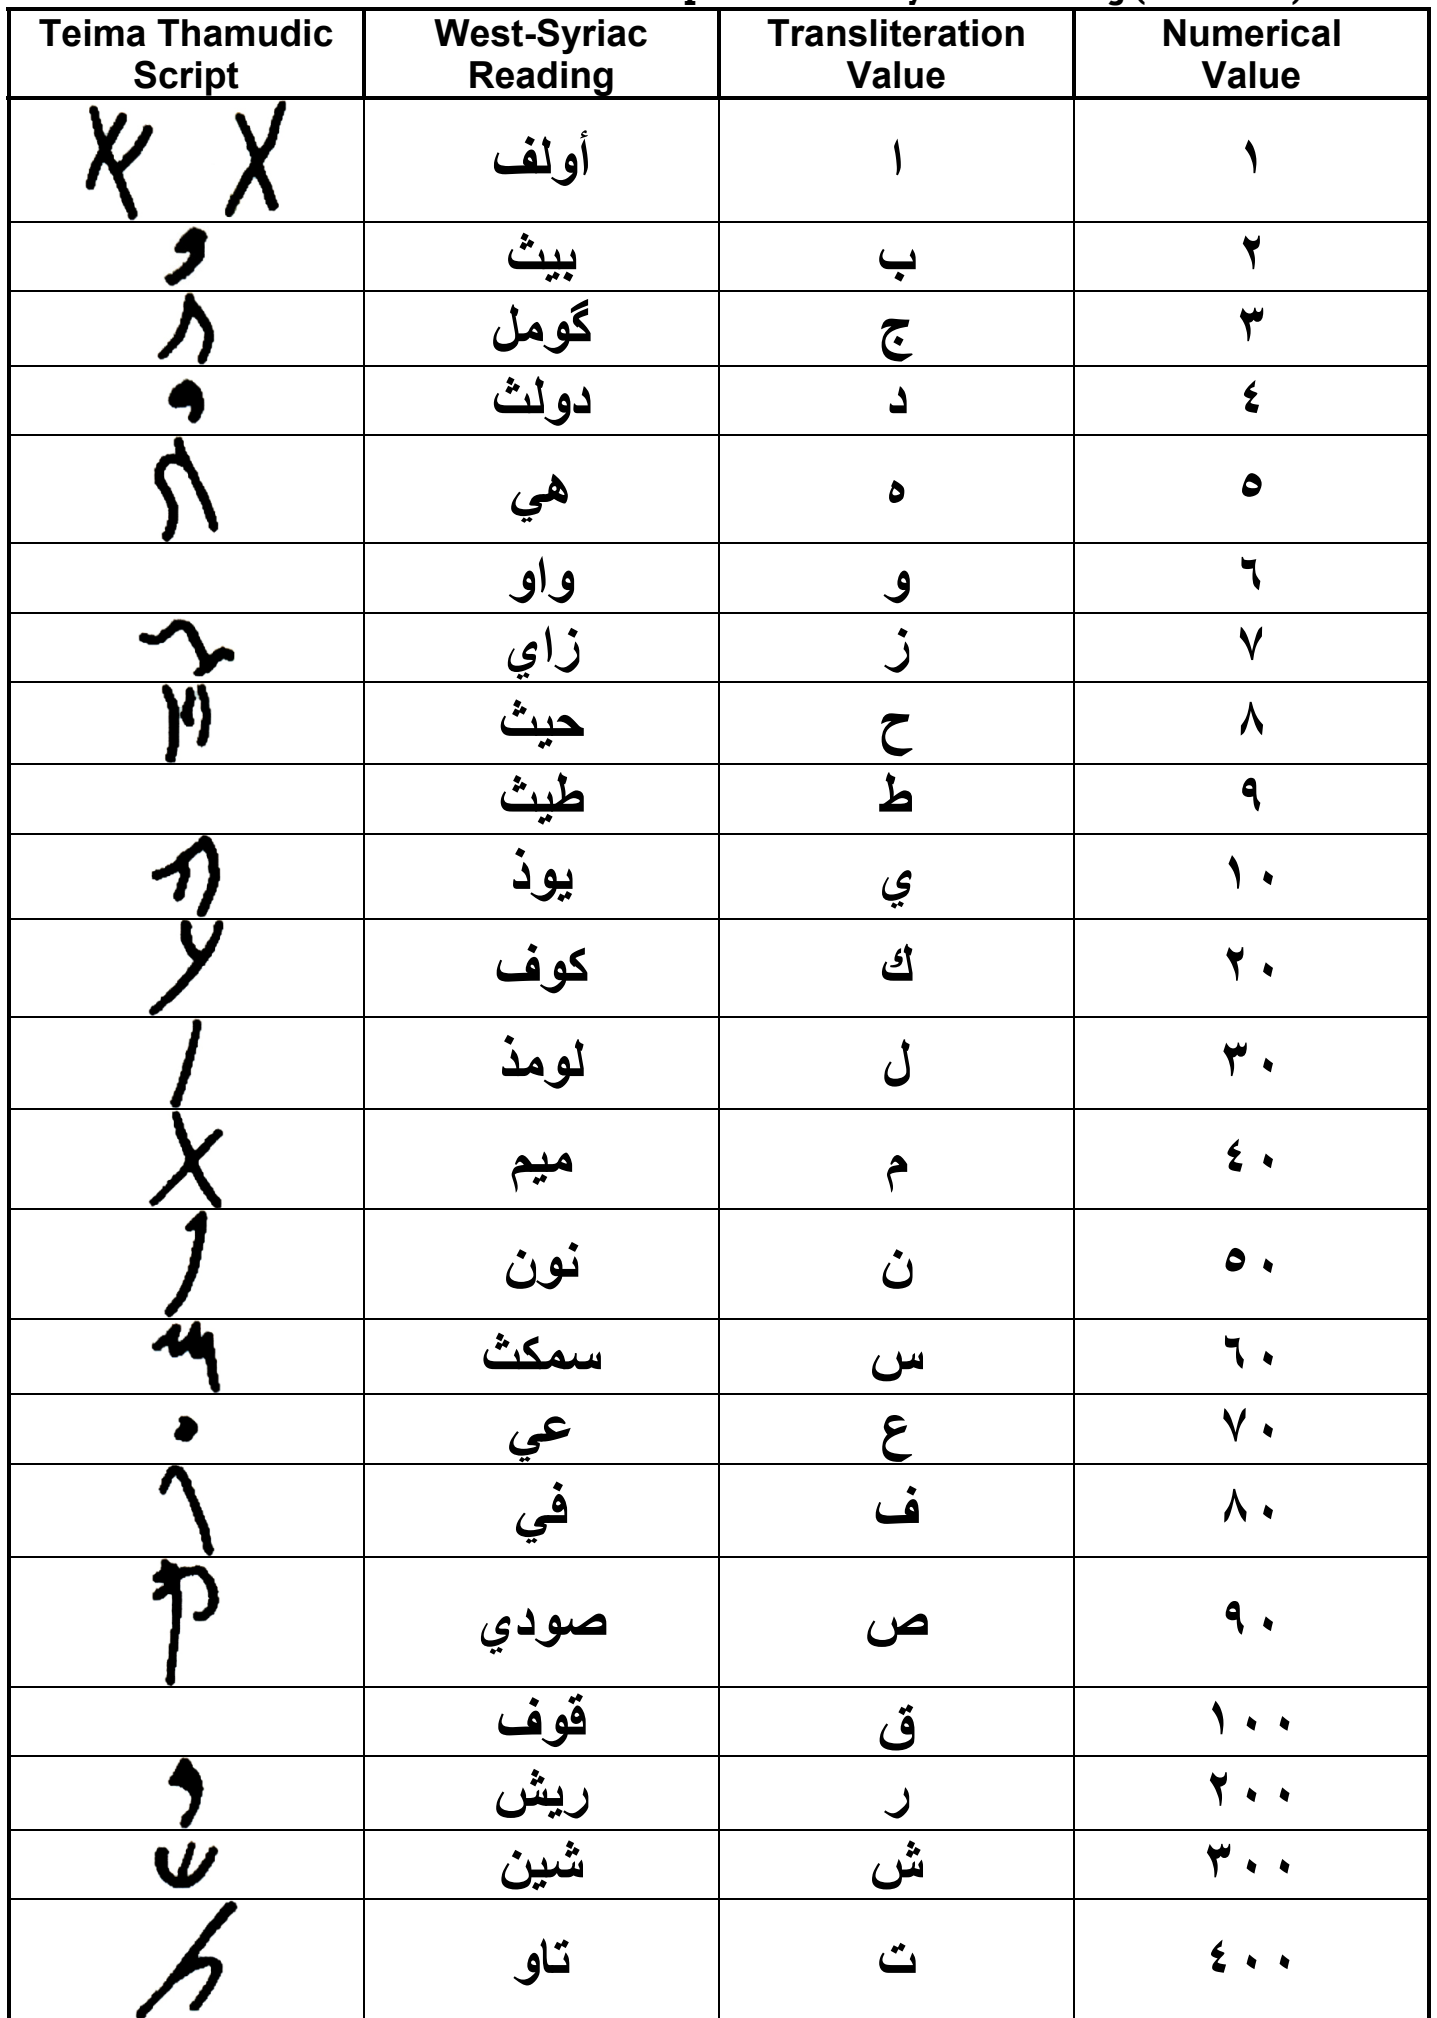 Teima Thamudic Script West-Syriac Reading Transliteration Value Numerical Value
أولف ا ١
بيث ب ٢
گومل ج ٣
دولث د ٤
هي ه ٥
واو و ٦
زاي ز ٧
حيث ح ٨
طيث ط ٩
يوذ ي ١٠
كوف ك ٢٠
لومذ ل ٣٠
ميم م ٤٠
نون ن ٥٠
سمكث س ٦٠
عي ع ٧٠
في ف ٨٠
صودي ص ٩٠
قوف ق ١٠٠
ريش ر ٢٠٠
شين ش ٣٠٠
تاو ت ٤٠٠